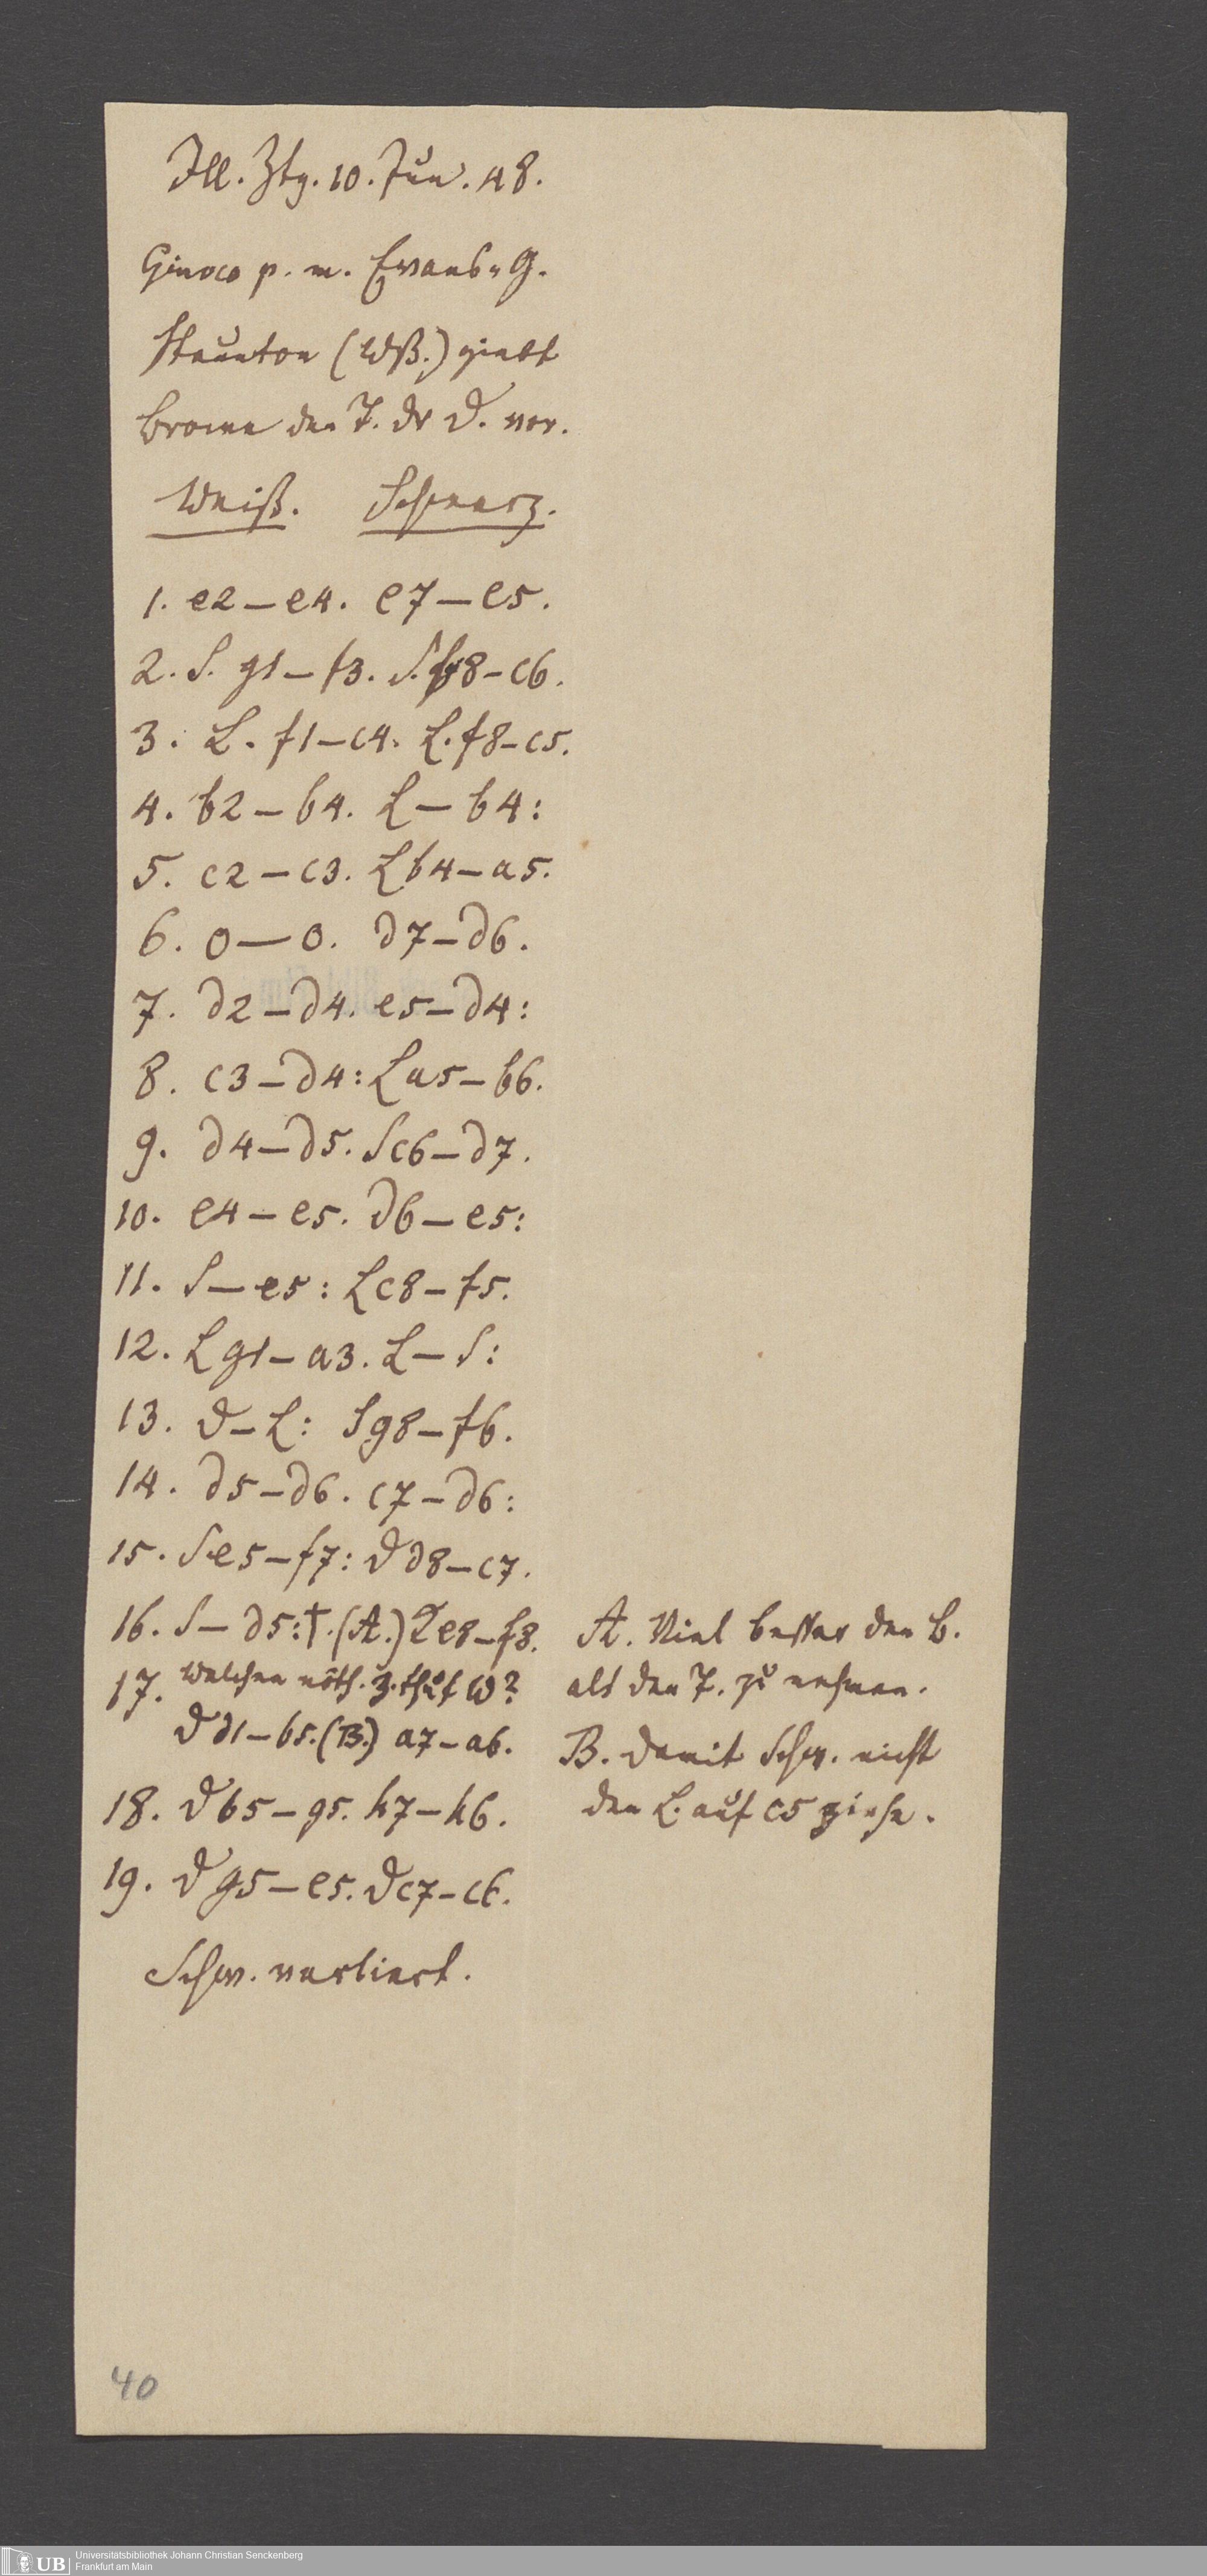 Ill. Ztg. 10. Jun. 48.
Giuoco p. m. Evans-G.
Staunton (Wß.) giebt
Brown den T. der D. vor.
Weiß. Schwarz.
1. e2–e4. e7–e5.
2. S. g1–f3. S. b8–c6.
3. L. f1–c4. L. f8–c5.
4. b2–b4. L–b4:
5. c2–c3. Lb4–a5.
6. 0–0. d7–d6.
7. d2–d4. e5–d4:
8. c3–d4: La5–b6.
9. d4–d5. Sc6–d7.
10. e4–e5. d6–e5:
11. S–e5: Lc8–f5.
12. Lg1–a3. L–S:
13. D–L: Sg8–f6.
14. d5–d6. c7–d6:
15. Se5–f7: Dd8–c7.
16. S–d5:†. (A.) Ke8–f8.
17. Welchen nöth. Z. thut W?
Dd1–b5. (B.) a7–a6.
18. Db5–g5. h7–h6.
19. Dg5–e5. Dc7–c6.
Schw. verliert.
A. Viel besser den B.
als den T. zu nehmen.
B. Damit Schw. nicht
den L. auf c5 ziehe.
40
UB Universitätsbibliothek Johann Christian Senckenberg
Frankfurt am Main